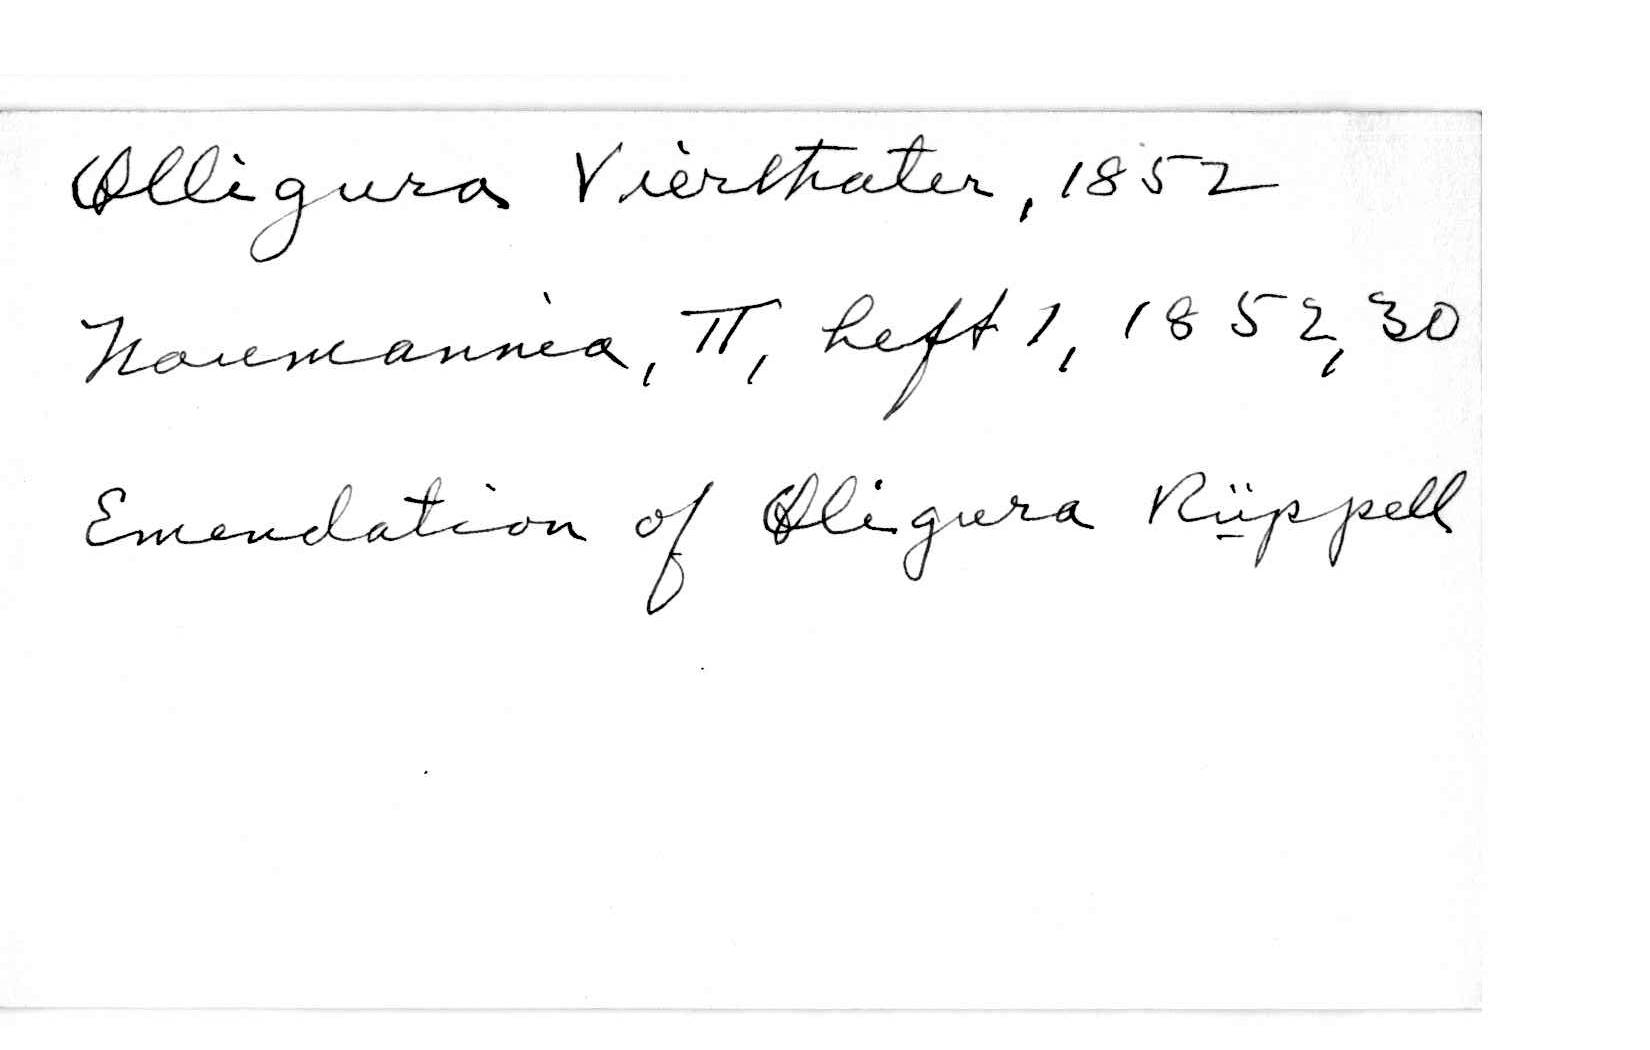 Olligura Vierthaler, 1852
Naumannia, II, heft 1, 1852, 30
Emendation of Oligura Rüppell